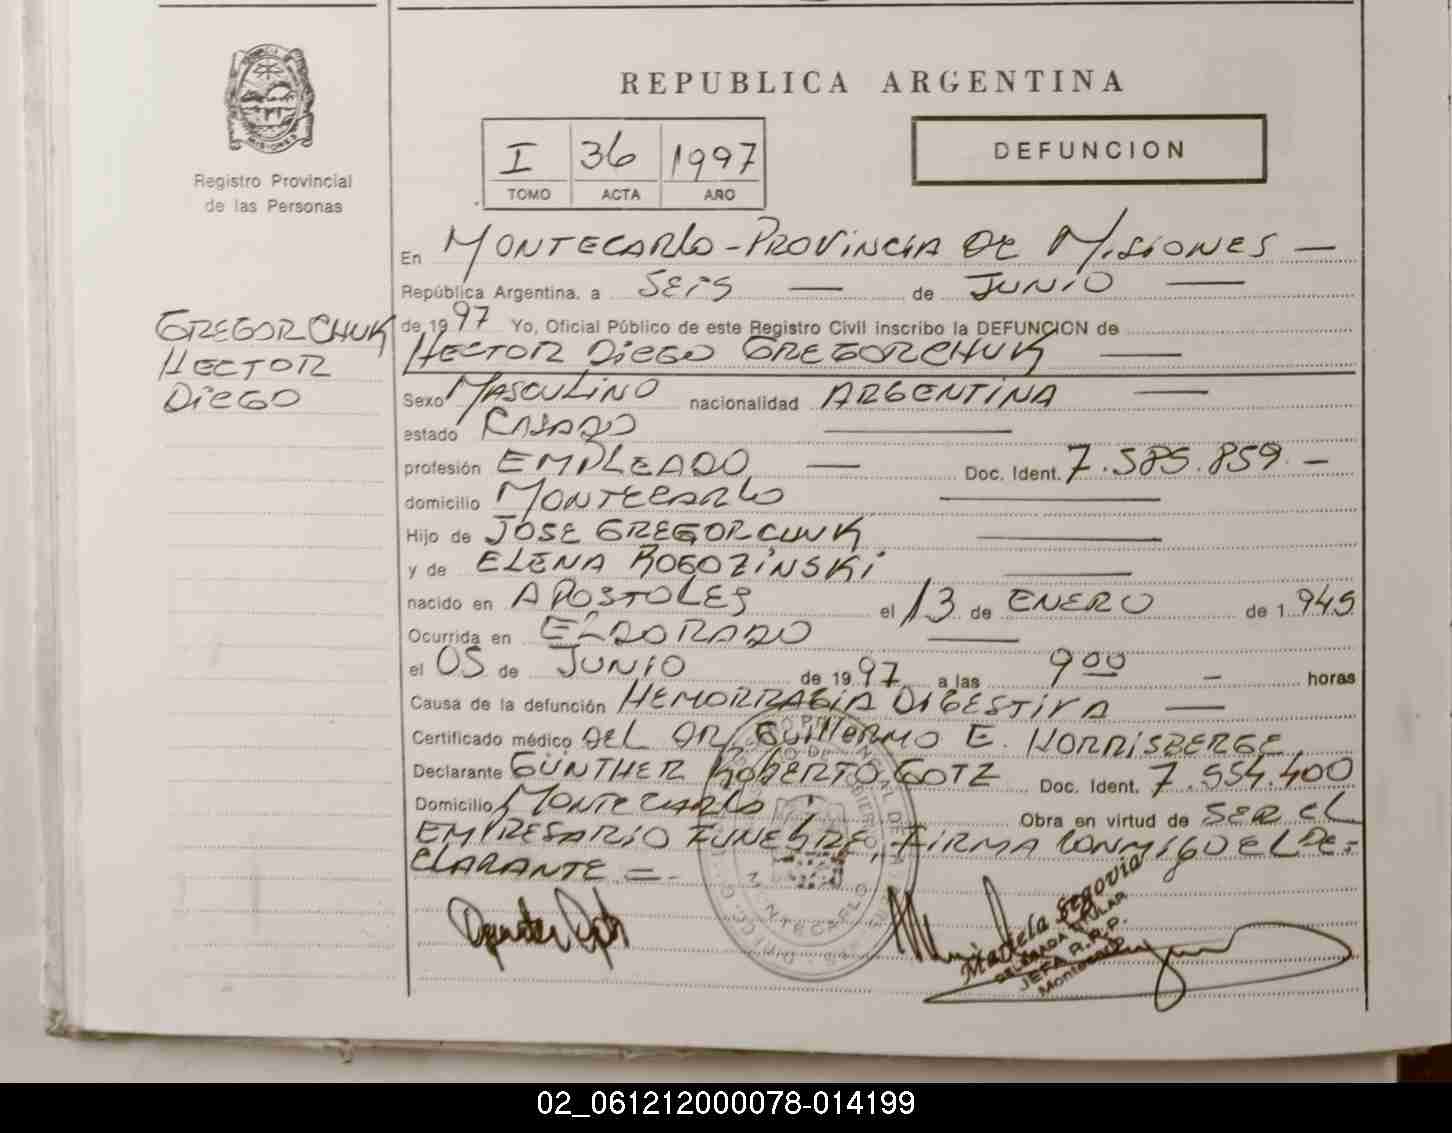 REPUBLICA ARGENTINA
MISIONES
Registro Provincial
de las Personas
I 36 1997
TOMO ACTA AÑO
DEFUNCION
En MONTECARLO - PROVINCIA DE MISIONES —
República Argentina, a SEIS — de JUNIO —
GREGORCHUK
HECTOR
DIEGO
de 1997 Yo, Oficial Público de este Registro Civil inscribo la DEFUNCION de
HECTOR DIEGO GREGORCHUK —
Sexo MASCULINO nacionalidad ARGENTINA —
estado CASADO —
profesión EMPLEADO — Doc. Ident. 7.585.859 —
domicilio MONTECARLO —
Hijo de JOSE GREGORCHUK —
y de ELENA ROGOZINSKI —
nacido en APOSTOLES el 13 de ENERO de 1949
Ocurrida en ELDORADO —
el 05 de JUNIO de 1997 a las 9 00 — horas
Causa de la defunción HEMORRAGIA DIGESTIVA —
Certificado médico DEL DR. GUILLERMO E. HORRISBERGE.
Declarante GUNTHER ROBERTO GOTZ Doc. Ident. 7.554.400
Domicilio MONTECARLO Obra en virtud de SER EL
EMPRESARIO FUNEBRE, FIRMA CONMIGO EL DE-
CLARANTE =-
MONTECARLO
Mariela Segovia
DELEGADA TITULAR
JEFA R.R.P.
Montecarlo
02_061212000078-014199